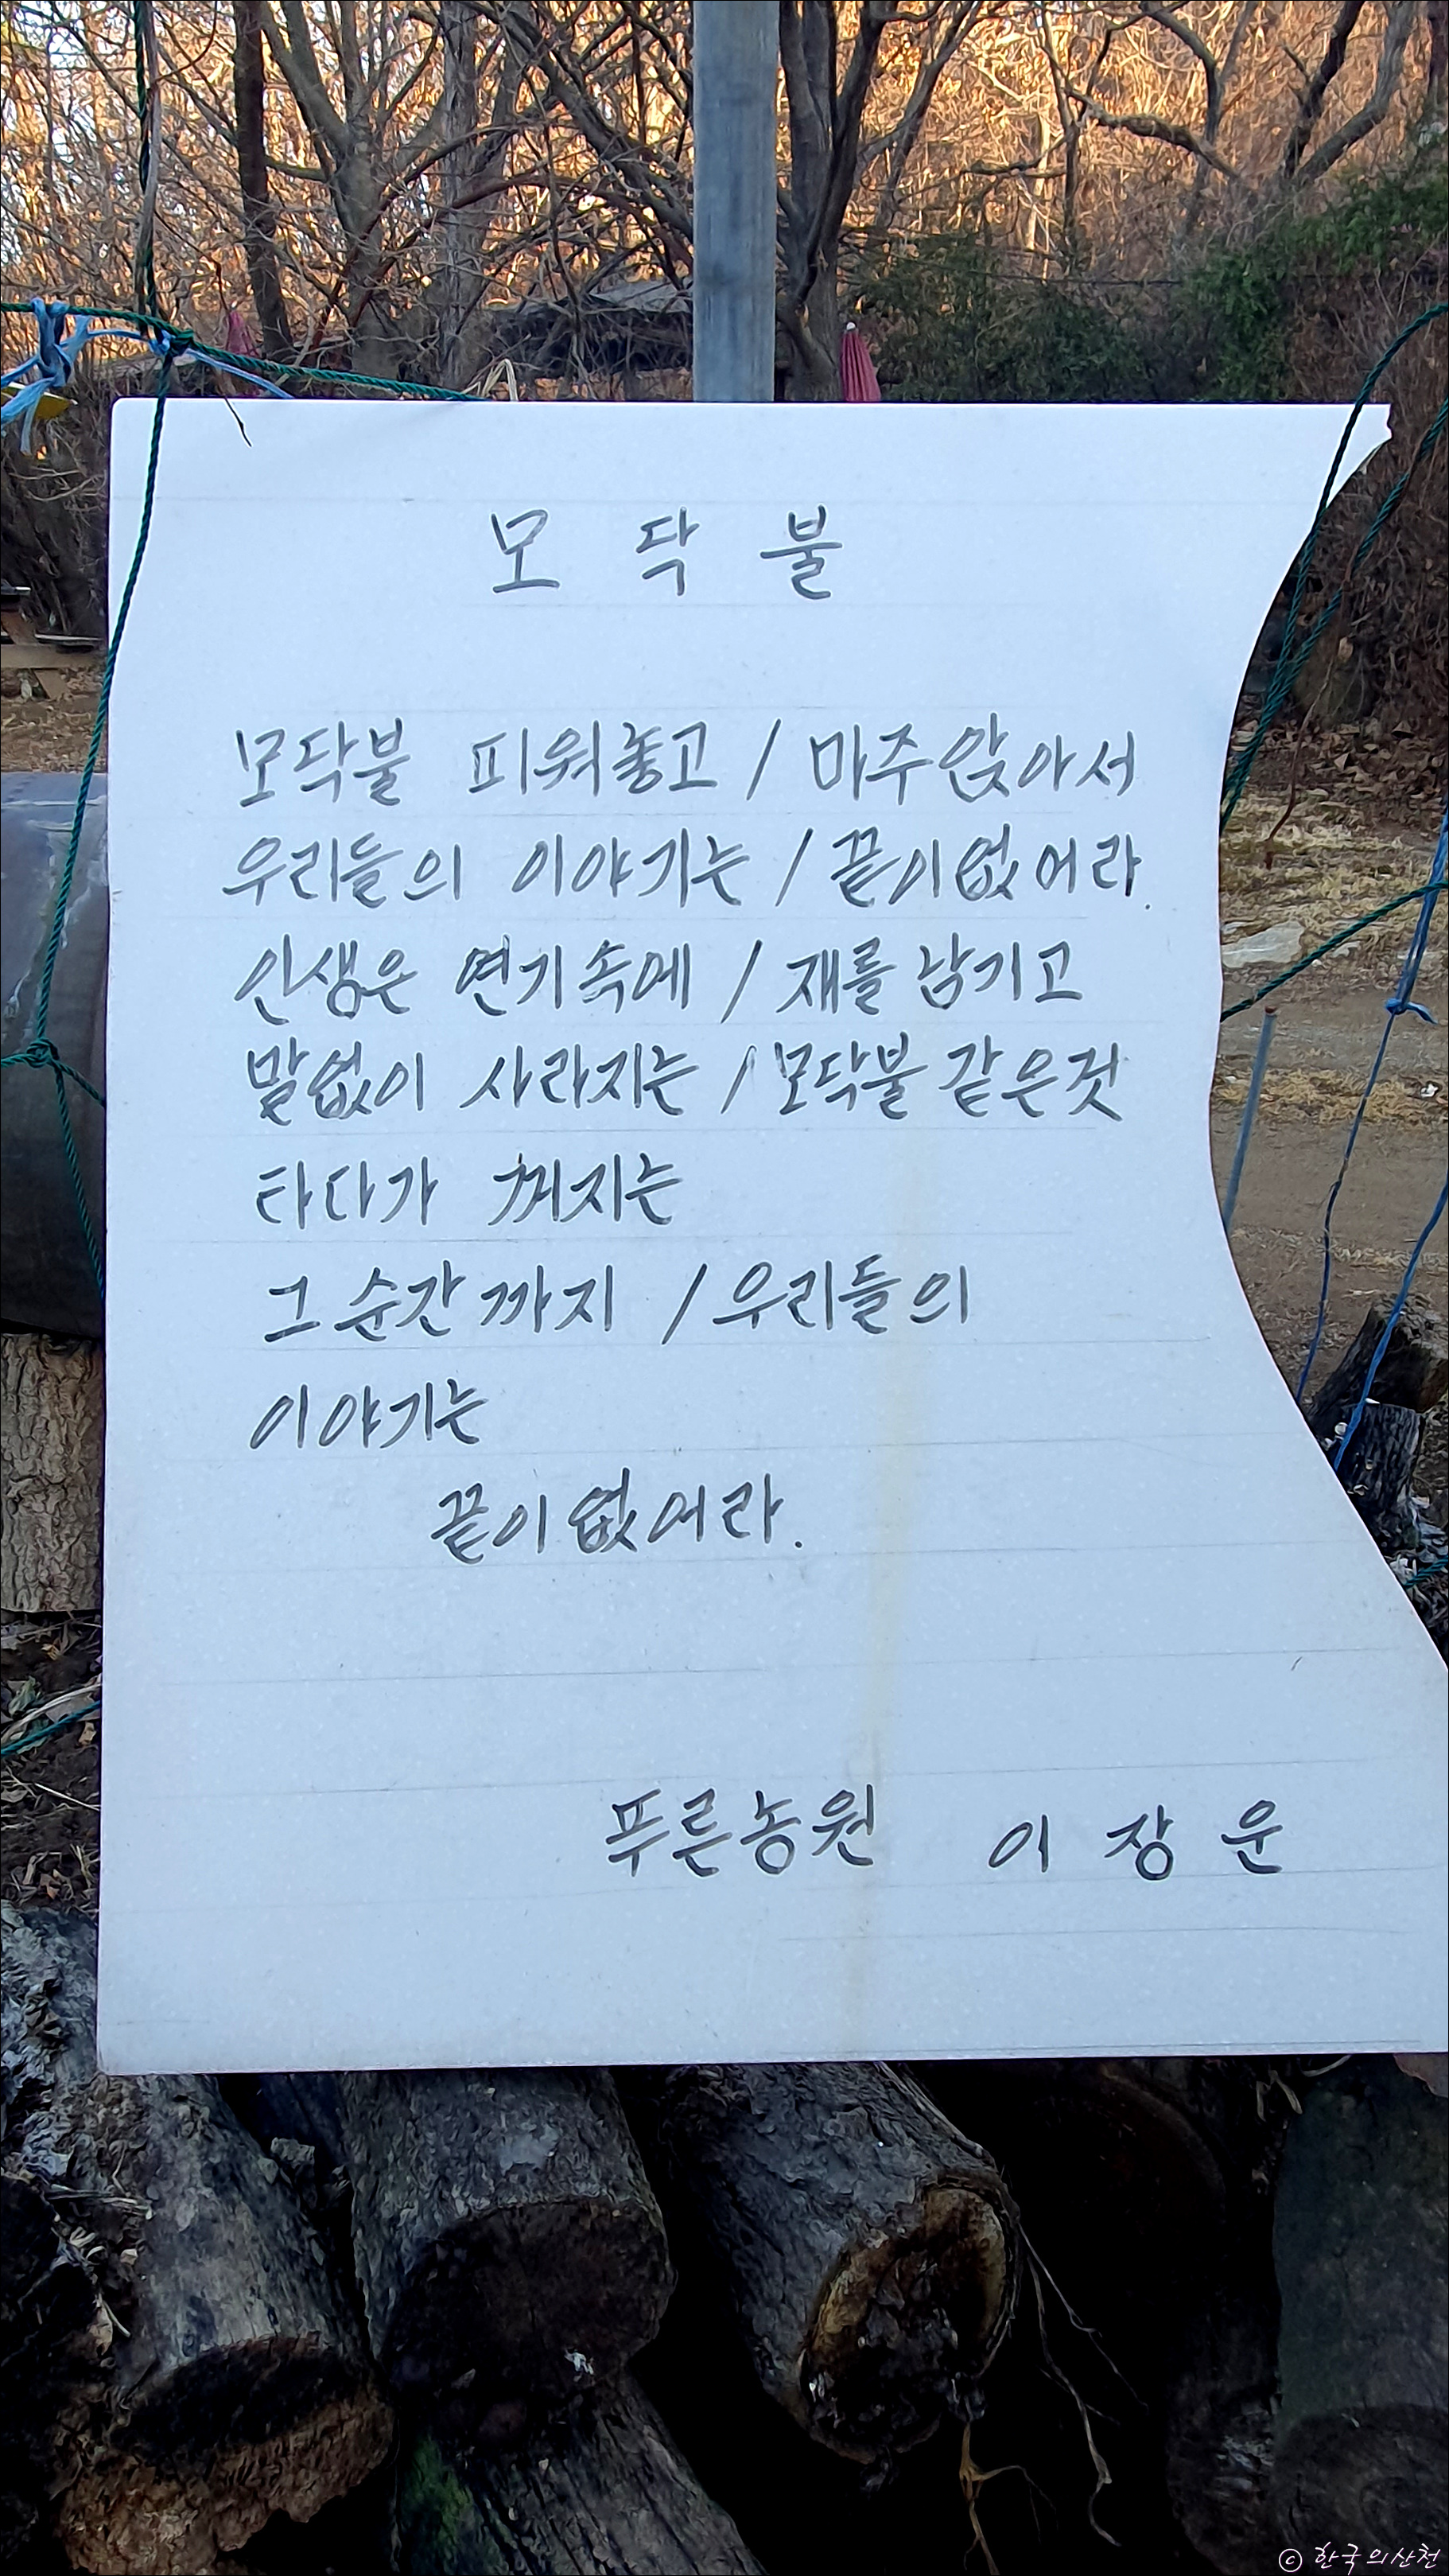 모 닥 불
모닥불 피워놓고 / 마주앉아서
우리들의 이야기는 / 끝이없어라.
인생은 연기속에 / 재를 남기고
말없이 사라지는 / 모닥불 같은것
타다가 꺼지는
그순간까지 / 우리들의
이야기는
끝이없어라.
푸른농원 이 장 운
© 한국의산천